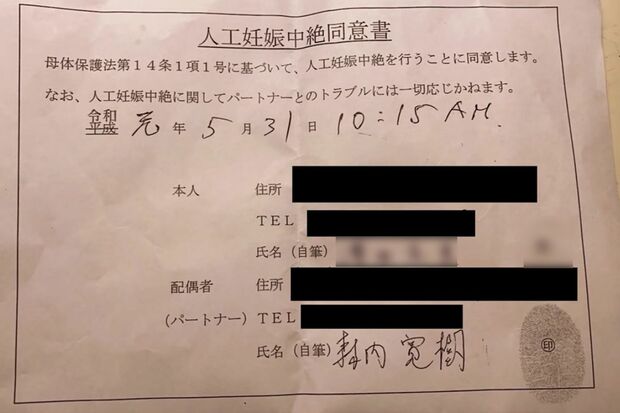 人工妊娠中絶同意書
母体保護法第14条1項1号に基づいて、人工妊娠中絶を行うことに同意します。
なお、人工妊娠中絶に関してパートナーとのトラブルには一切応じかねます。
令和
平成 元 年 5 月 31 日 10:15 AM.
本人 住所
TEL
氏名(自筆)
配偶者 住所
(パートナー) TEL
氏名(自筆) 森内 寛樹 印